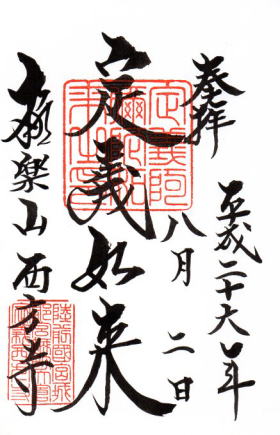 奉拝
平成二十六年
八月 二日
定義如来
極楽山 西方寺